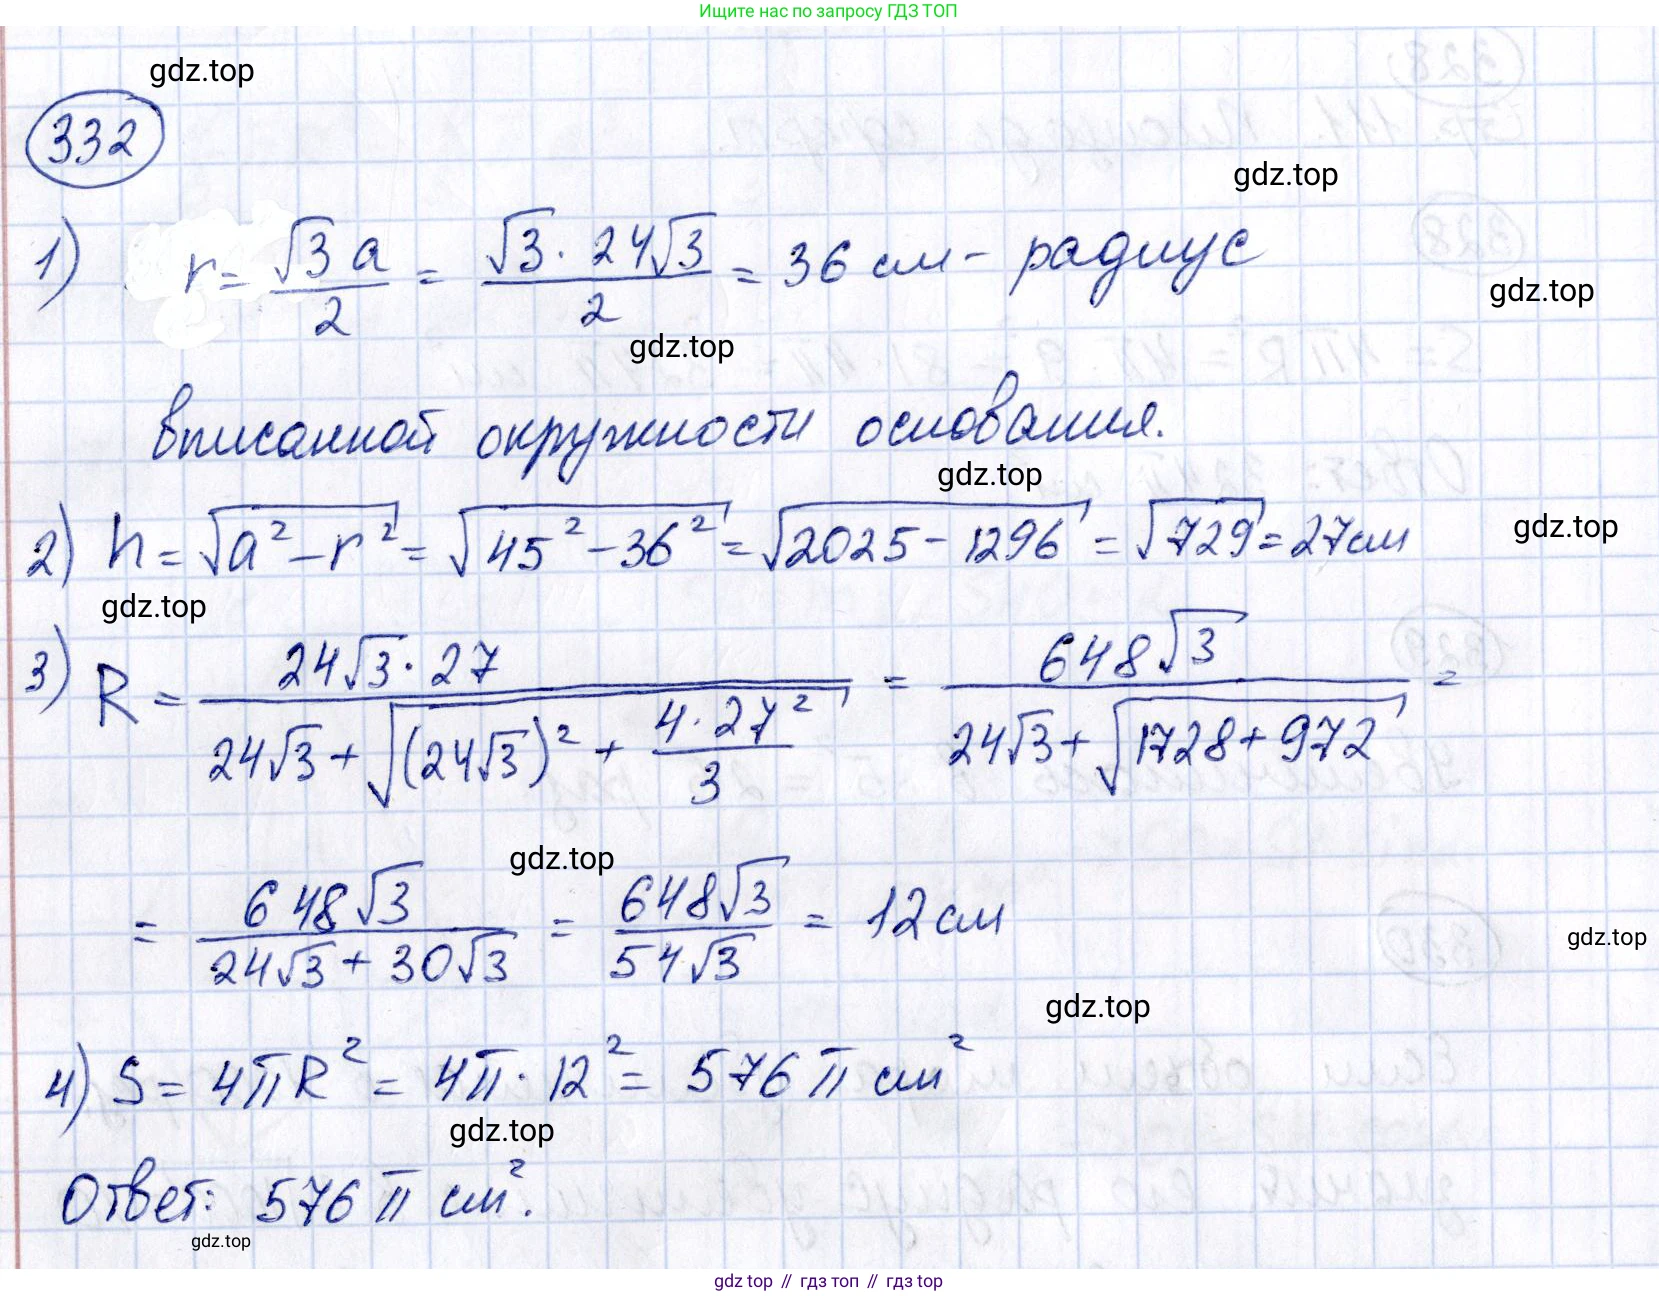 Ищите нас по запросу ГДЗ ТОП
gdz.top
332
gdz.top
1) r = √3 a / 2 = √3 · 24√3 / 2 = 36 см - радиус
gdz.top
gdz.top
вписанной окружности основания.
gdz.top
2) h = √(a² - r²) = √(45² - 36²) = √(2025 - 1296) = √729 = 27см
gdz.top
gdz.top
3) R = 24√3 · 27 / (24√3 + √((24√3)² + 4 · 27² / 3)) = 648√3 / (24√3 + √(1728 + 972)) =
gdz.top
= 648√3 / (24√3 + 30√3) = 648√3 / 54√3 = 12 см
gdz.top
gdz.top
4) S = 4πR² = 4π · 12² = 576 π см²
gdz.top
Ответ: 576 π см².
gdz.top
gdz top // гдз топ // gdz top